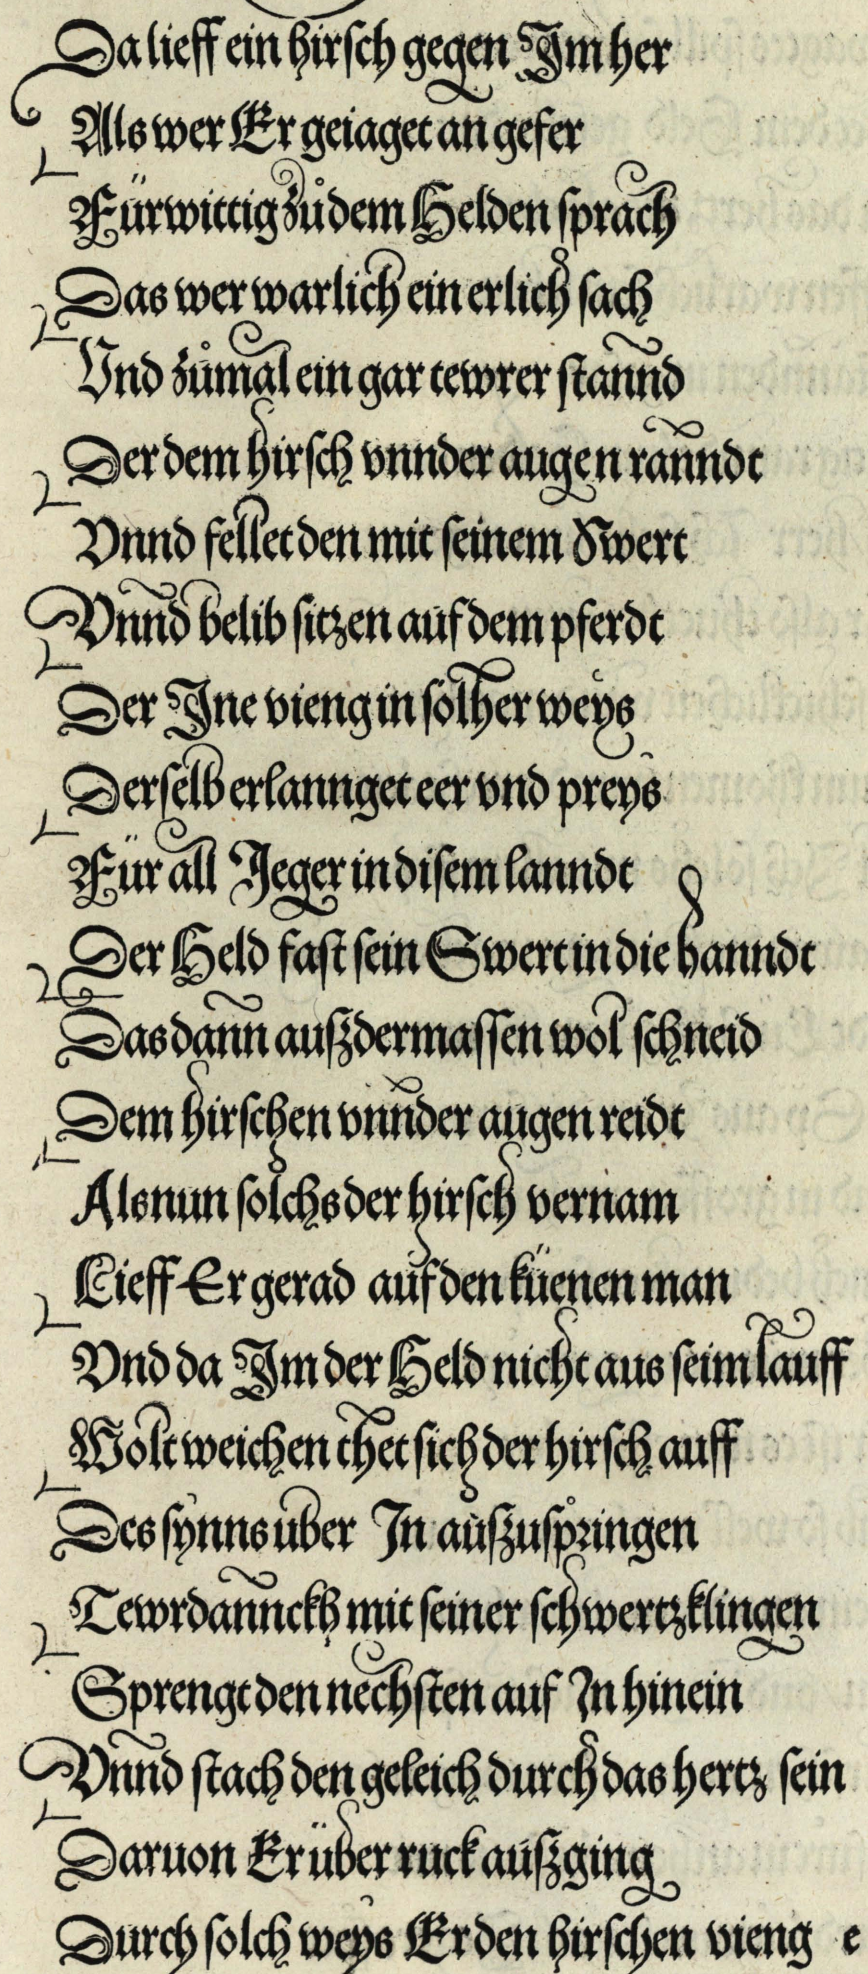 Da lieff ein hirsch gegen Im her
Als wer Er geiaget an gefer
Fürwittig zů dem Helden sprach
Das wer warlich ein erlich sach
Vnd zůmal ein gar tewrer stannd
Der dem hirsch vnnder augen ranndt
Vnnd fellet den mit seinem Swert
Vnnd belib sitzen auf dem pferdt
Der Ine vieng in solher weys
Derselb erlannget eer vnd preys
Für all Jeger in disem lanndt
Der Held fast sein Swert in die hanndt
Das dann auszdermassen wol schneid
Dem hirschen vnnder augen reidt
Als nun solchs der hirsch vernam
Lieff Er gerad auf den küenen man
Vnd da Im der Held nicht aus seim lauff
Wolt weichen thet sich der hirsch auff
Des synns uber In auszuspringen
Tewrdannckh mit seiner schwertzklingen
Sprengt den nechsten auf In hinein
Vnnd stach den geleich durch das hertz sein
Daruon Er über ruck auszging
Durch solch weys Er den hirschen vieng e